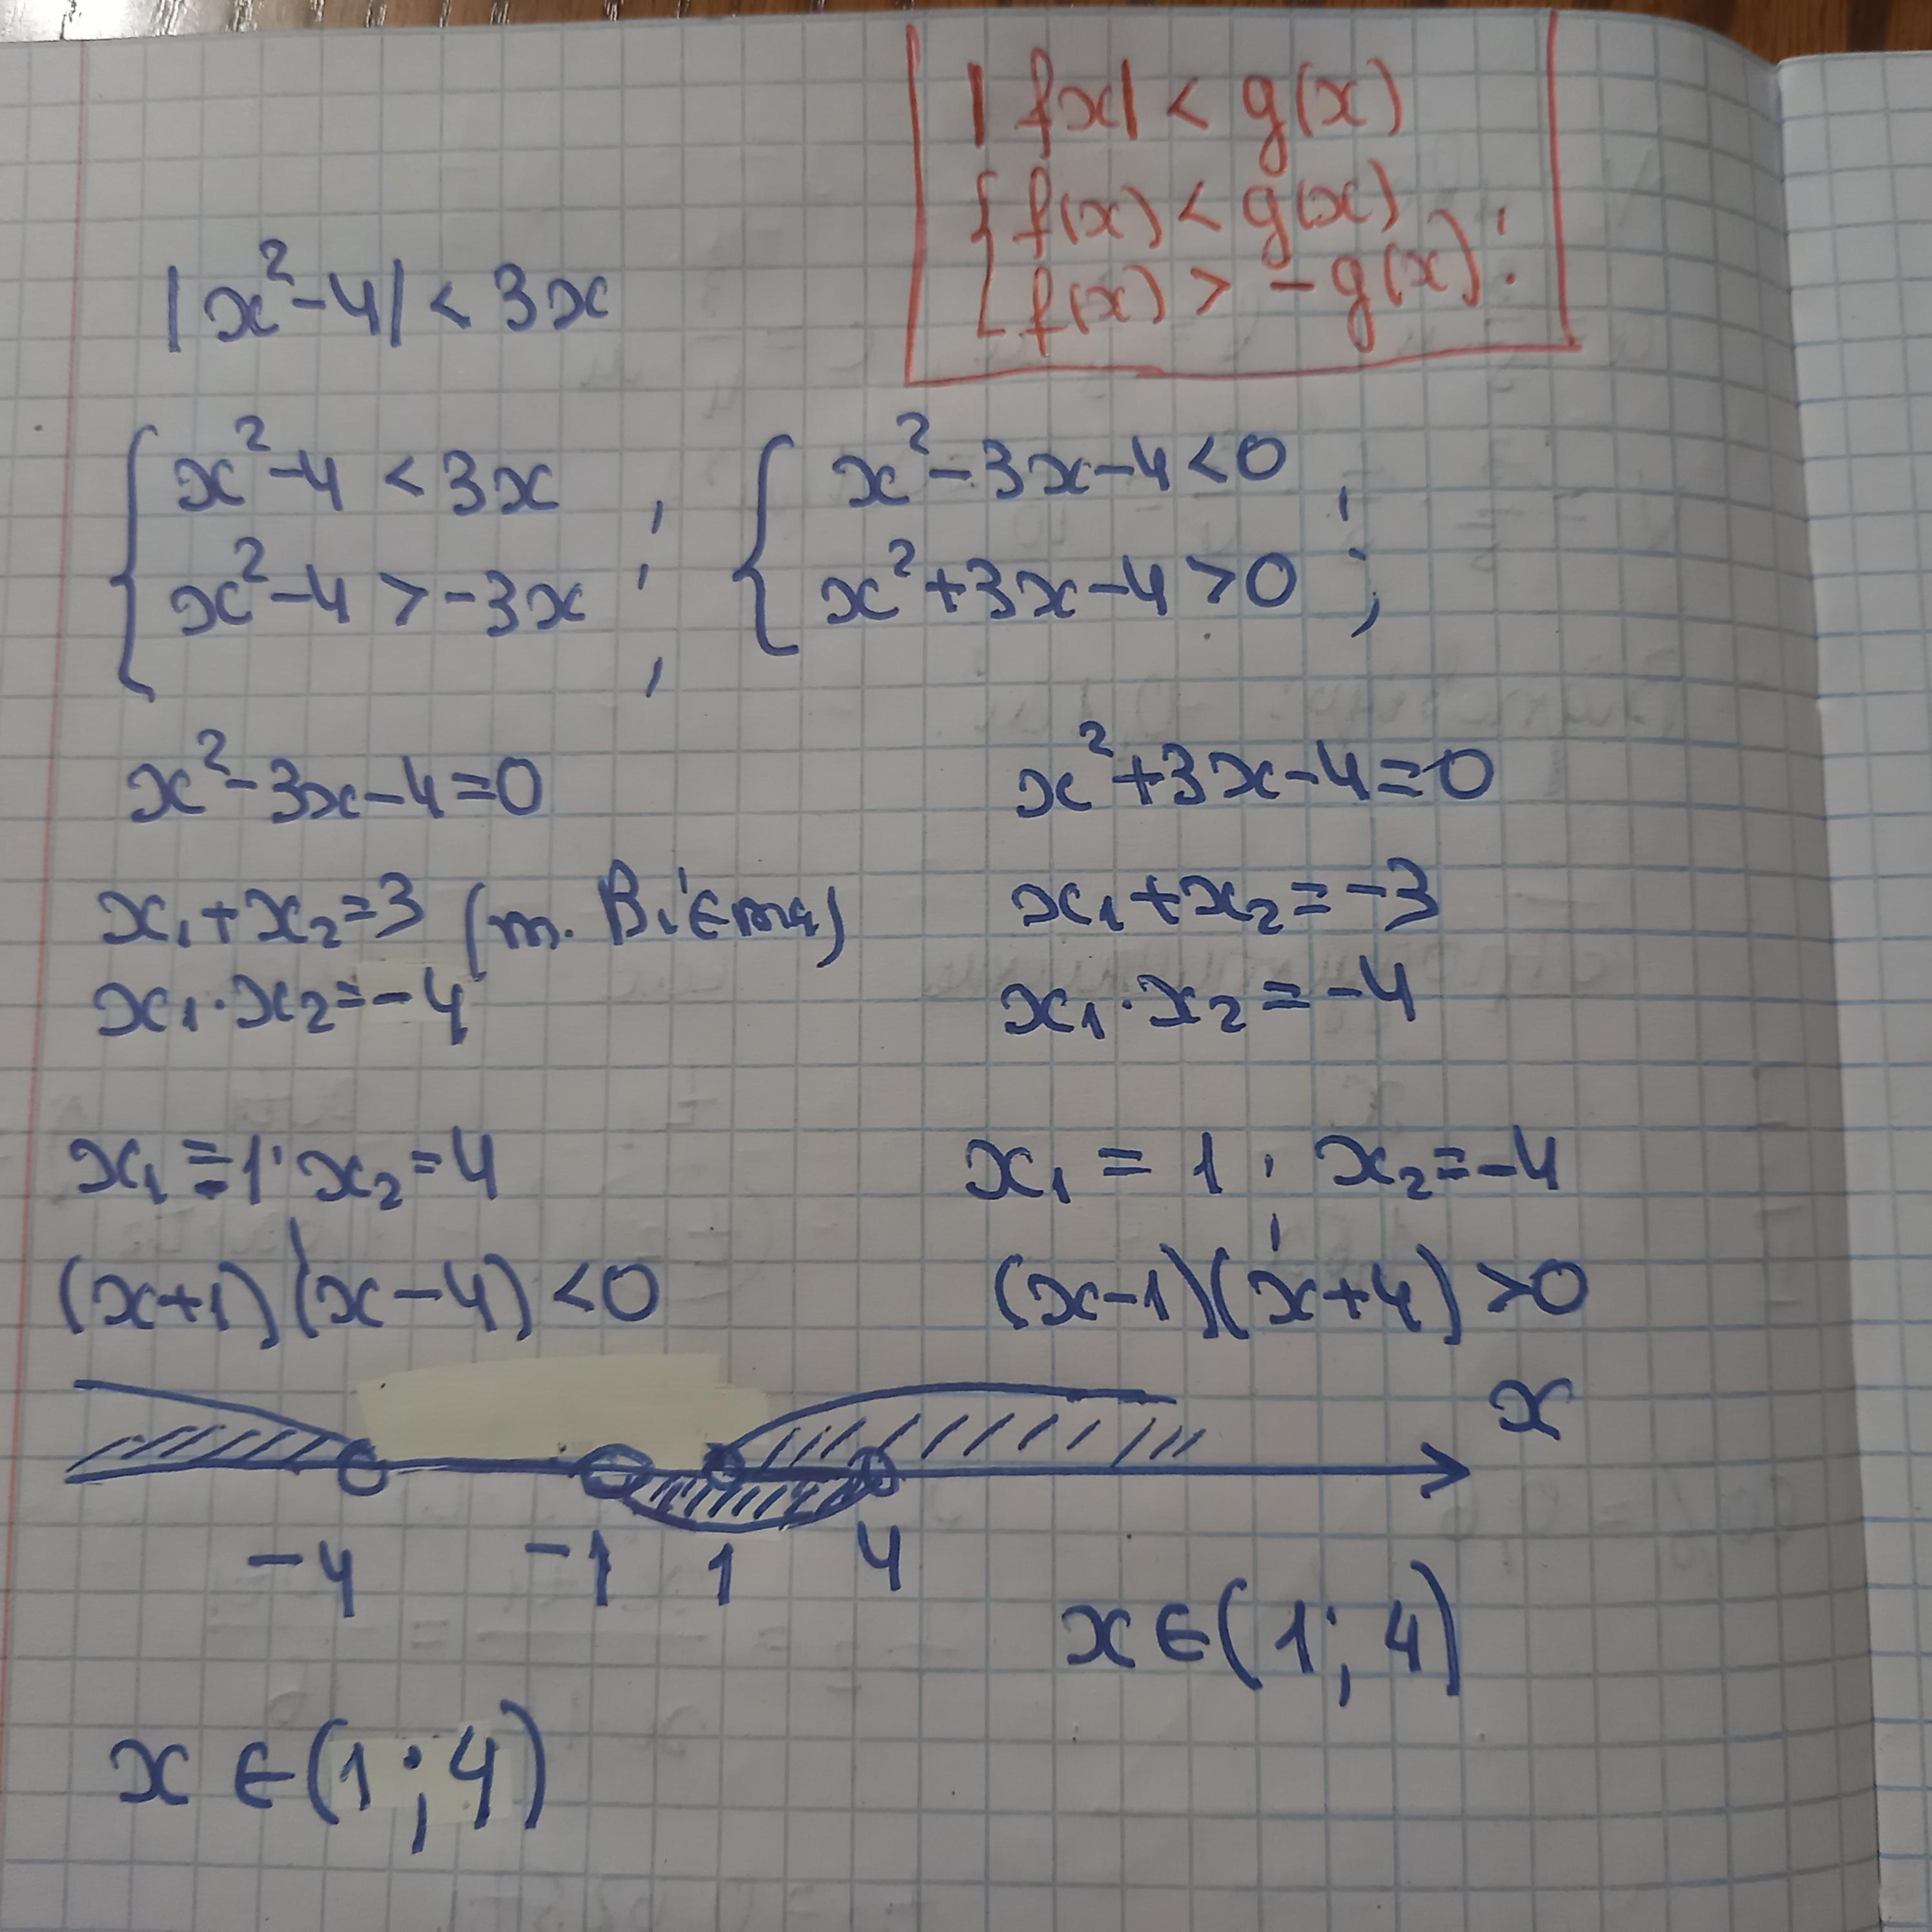 |fx| < g(x)
{ f(x) < g(x)
f(x) > -g(x) ;
|x²-4| < 3x
{ x²-4 < 3x
x²-4 > -3x ;
{ x²-3x-4<0
x²+3x-4>0 ;
x²-3x-4=0
x₁+x₂=3 (т. Вієта)
x₁·x₂=-4
x₁=-1; x₂=4
(x+1)(x-4)<0
x²+3x-4=0
x₁+x₂=-3
x₁·x₂=-4
x₁=1; x₂=-4
(x-1)(x+4)>0
x
-4 -1 1 4
x∈(1;4)
x∈(1;4)